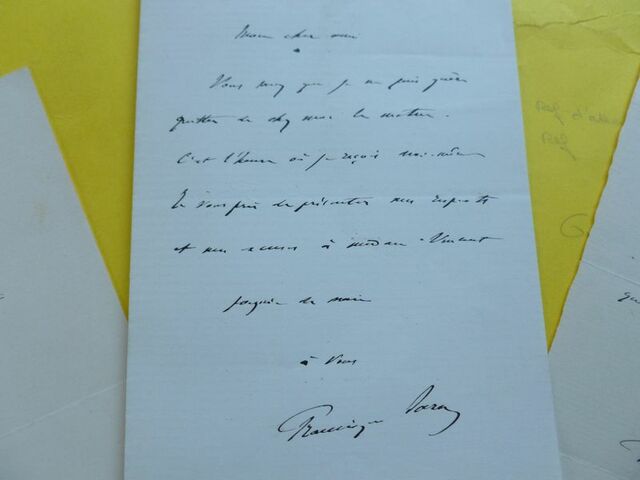 Mon cher ami
Vous savez que je ne puis guère
quitter de chez moi le matin.
C'est l'heure où je reçois moi-même
Je vous prie de présenter mes respects
et mes excuses à madame Vincent
de main
à vous
Francisque Sarcey